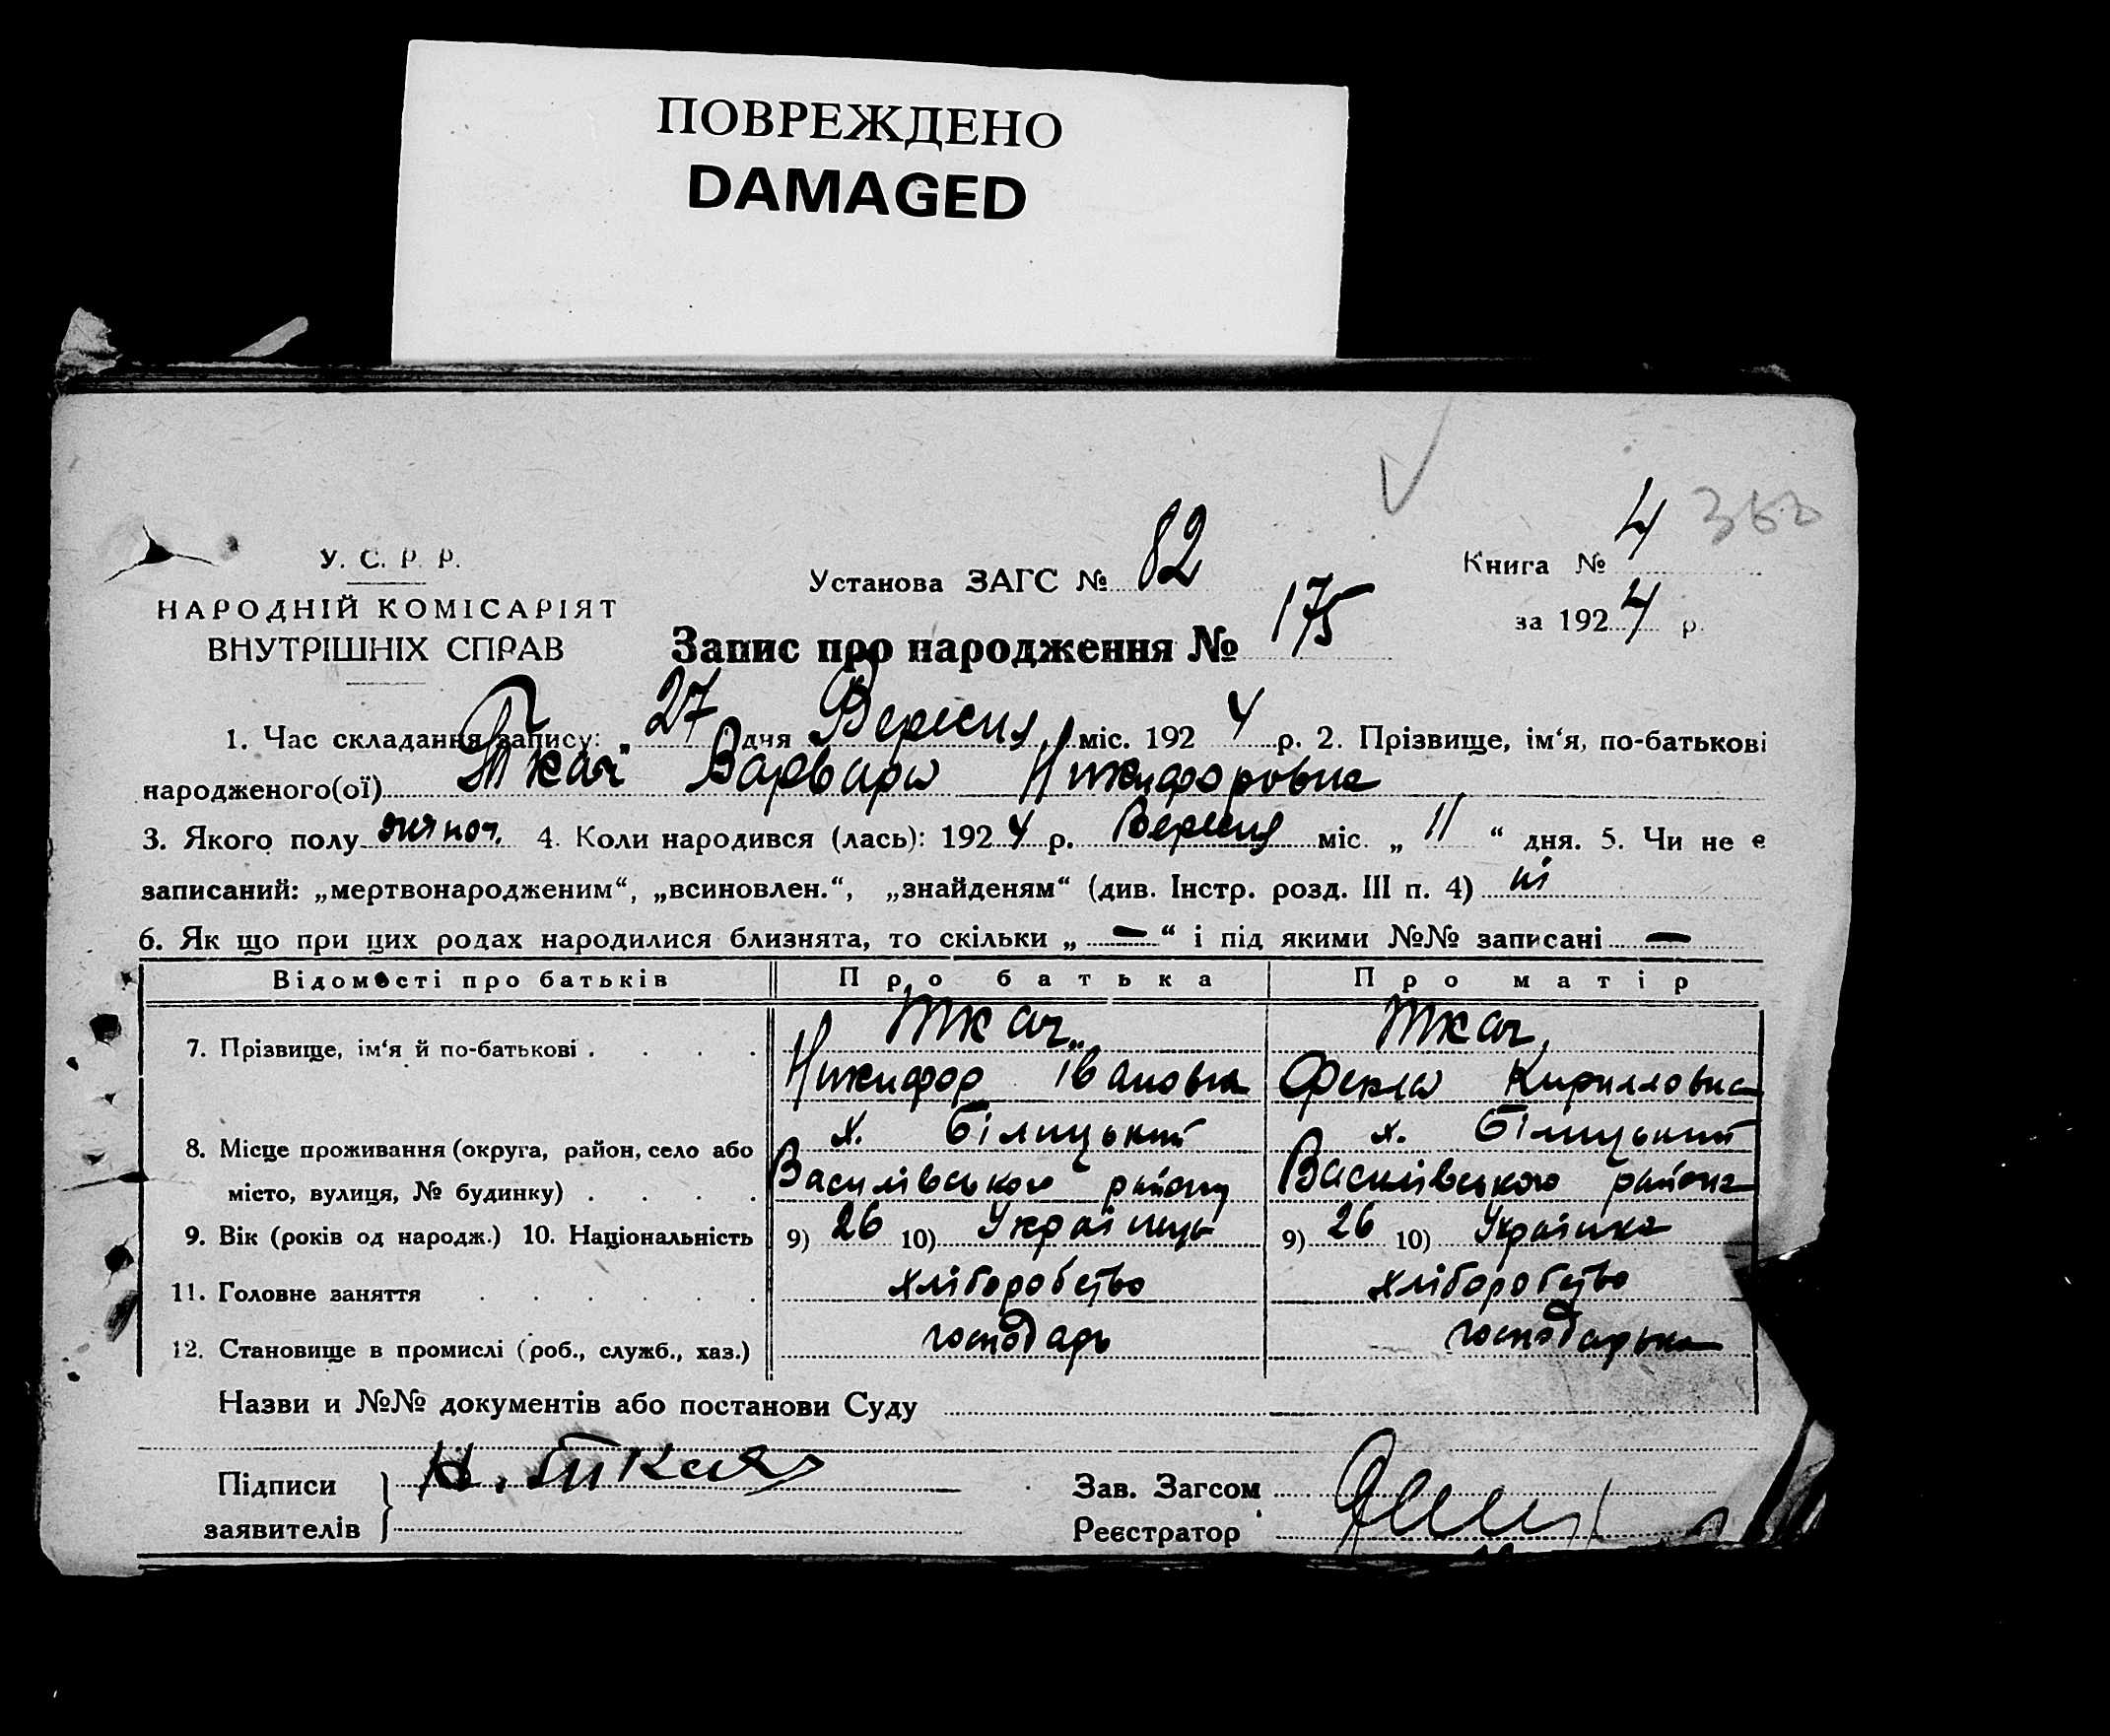 ПОВРЕЖДЕНО
DAMAGED
У. С. Р. Р.
НАРОДНІЙ КОМІСАРІЯТ
ВНУТРІШНІХ СПРАВ
Установа ЗАГС № 82
Книга № 4
за 1924 р.
Запис про народження № 175
1. Час складання запису: „ 27 дня Вересня міс. 1924 р. 2. Прізвище, ім‘я, по-батькові
народженого(ої) Ткач Варвара Никифоровна
3. Якого полу жіноч. 4. Коли народився (лась): 1924 р. Вересня міс. „ 11 “ дня. 5. Чи не є
записаний: „мертвонародженим“, „всиновлен.“, „знайденям“ (див. Інстр. розд. III п. 4) ні
6. Як що при цих родах народилися близнята, то скільки „ — “ і під якими №№ записані —
Відомості про батьків Про батька Про матір
7. Прізвище, ім‘я й по-батькові . . . . Ткач Ткач,
Никифор Іванович Фекла Кирилловна
х. Білицький х. Білицький
8. Місце проживання (округа, район, село або
місто, вулиця, № будинку) . . . . Василівського району Василівського района
9. Вік (років од народж.) 10. Національність 9) 26 10) Українць 9) 26 10) Українка
11. Головне заняття . . . . . . хліборобство хліборобство
12. Становище в промислі (роб., служб., хаз.) господарь господарька
Назви и №№ документів або постанови Суду
Підписи Н. Ткач
заявителів
Зав. Загсом
Реєстратор